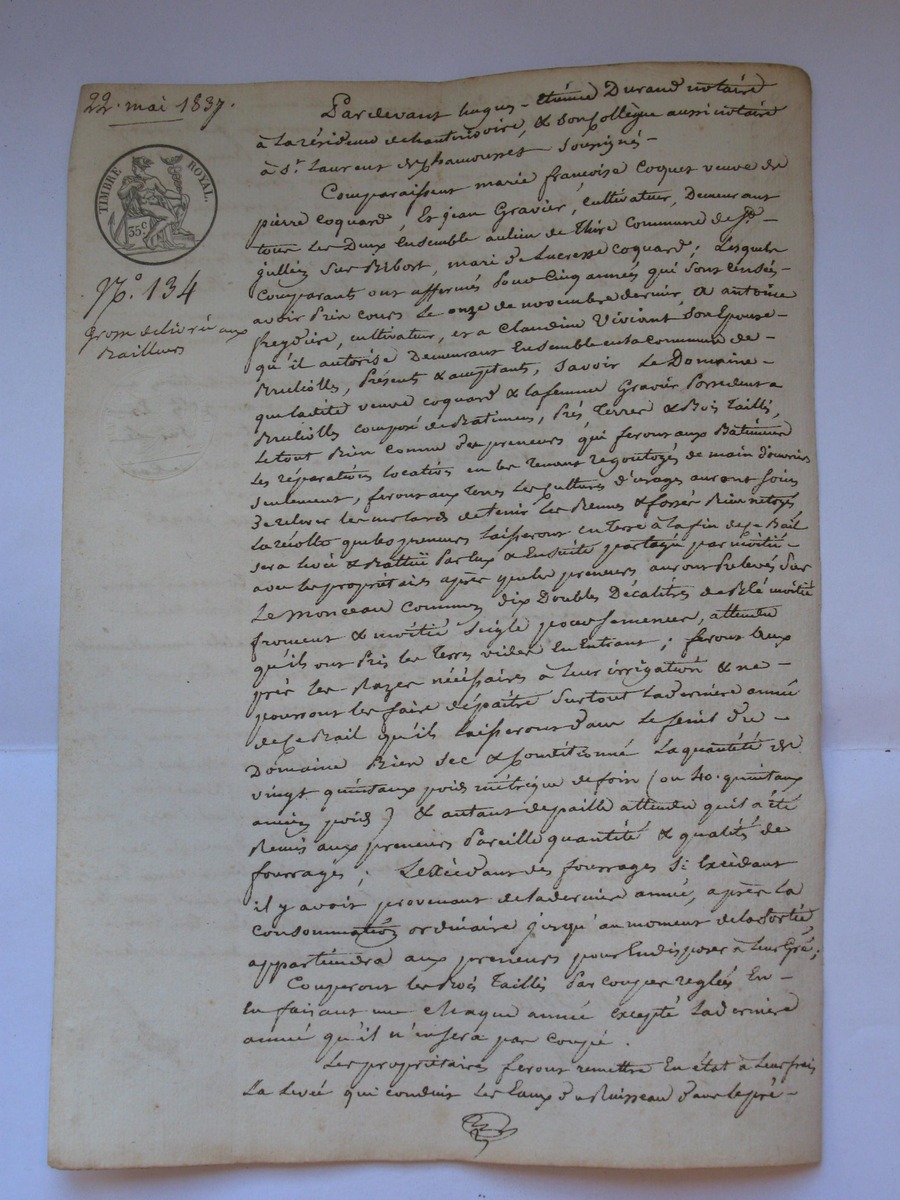 22. mai 1837.
TIMBRE ROYAL.
35 c.
N.° 134
grosse delivrée aux
Bailleurs
Pardevant hugues-étienne Durand notaire
à La résidence de hauterivoire, & son Collègue aussi notaire
à S.t Laurent de chamousset Soussignés-
Comparaissent marie françoise Coquet veuve de
pierre Coquard, Et jean Gravier, cultivateur, Demeurant
tous Les Deux Ensemble au lieu de Commune de S.t-
jullien Sur Bibost, mari de Lucresse Coquard; Lesquels
Comparants ont affermés pour Cinq années qui sont Censés-
avoir Pris cours Le onze de novembre dernier, a antoine
fregdière, cultivateur, et a Claudine Viviant son Epouse-
qu'il autorise Demeurant Ensemble en la Commune de-
Brullioles, Présents & acceptants, Savoir Le Domaine-
que ladite veuve Coquard & la femme Gravier Possedent a
Brullioles Composé de Batiments, Prés, Terres & Bois Taillis,
Le tout Bien Connu des preneurs qui feront aux Bâtiments
Les réparations locatives en les tenant regoutoyés de main d'ouvriers
Seulement, feront aux terres Les cultures d'usages auront soins
de relever les de tenir Les & fossés Bien netoyés
La récolte que les preneurs Laisseront en terre à La fin de ce Bail
sera levée & Battue Par Eux & Ensuite partagée par moitié-
avec les propriétaires après que les preneurs auront Prelevés Sur
Le Monceau Commun dix Doubles Décalitres de Blé moitié
froment & moitié Seigle pour semence, attendu
qu'ils ont Pris les Terres vides En Entrant; feront aux
prés les Razes nécessaires à leur irrigation & ne-
pourront les faire dépaître Surtout La dernière année
de ce Bail qu'ils Laisseront dans Le fenil du-
Domaine Bien sec & Conditionné La quantité de
vingt quintaux poids métrique de foin (ou 40. quintaux
ancien poids) & autant de paille attendu qu'il a été
Remis aux preneurs Pareille quantité & qualités de
fourrages; L'Excédant des fourrages Si Excédant
il y avoit provenant de la dernière année, après La
Consommation ordinaire jusqu'au moment de la Sortie
appartiendra aux preneurs pour En disposer à Leur Gré;
Couperont les Bois Taillis Par coupes reglées En-
En faisant une chaque année Excepté La dernière
année qu'il n'en sera pas coupé.
Les propriétaires feront remettre En état à Leur frais
La Levée qui conduit Les Eaux du Ruisseau dans le pré-